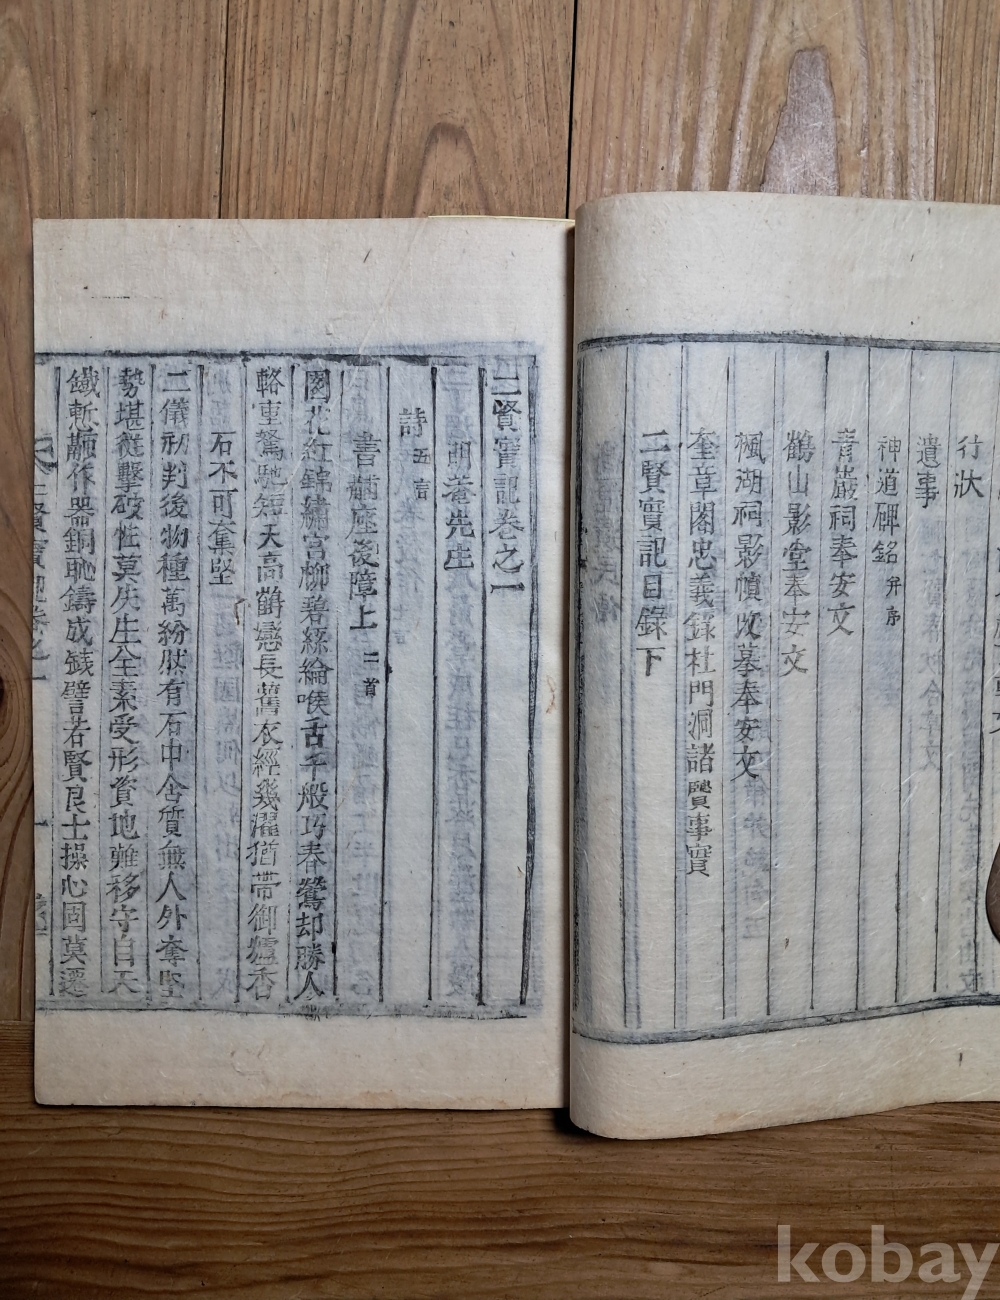 行狀
遺事
神道碑銘 幷序
靑巖祠奉安文
鶴山影堂奉安文
楓湖祠影幀改摹奉安文
奎章閣忠義錄杜門洞諸賢事實
二賢實記目錄下
二賢實記卷之一
明菴先生
詩 五言
書黼座後障上 二首
園花紅錦繡宮柳碧絲綸喉舌千般巧春鶯却勝人
輅重駑馳短天高鶴戀長舊衣經幾濯猶帶御爐香
石不可奪堅
二儀初判後物種萬紛然有石中含質無人外奪堅
勢堪從擊破性莫失生全素受形資地難移守自天
鐵慙鞭作器銅恥鑄成錢譬若賢良士操心固莫遷
二賢實記卷之一
一
kobay